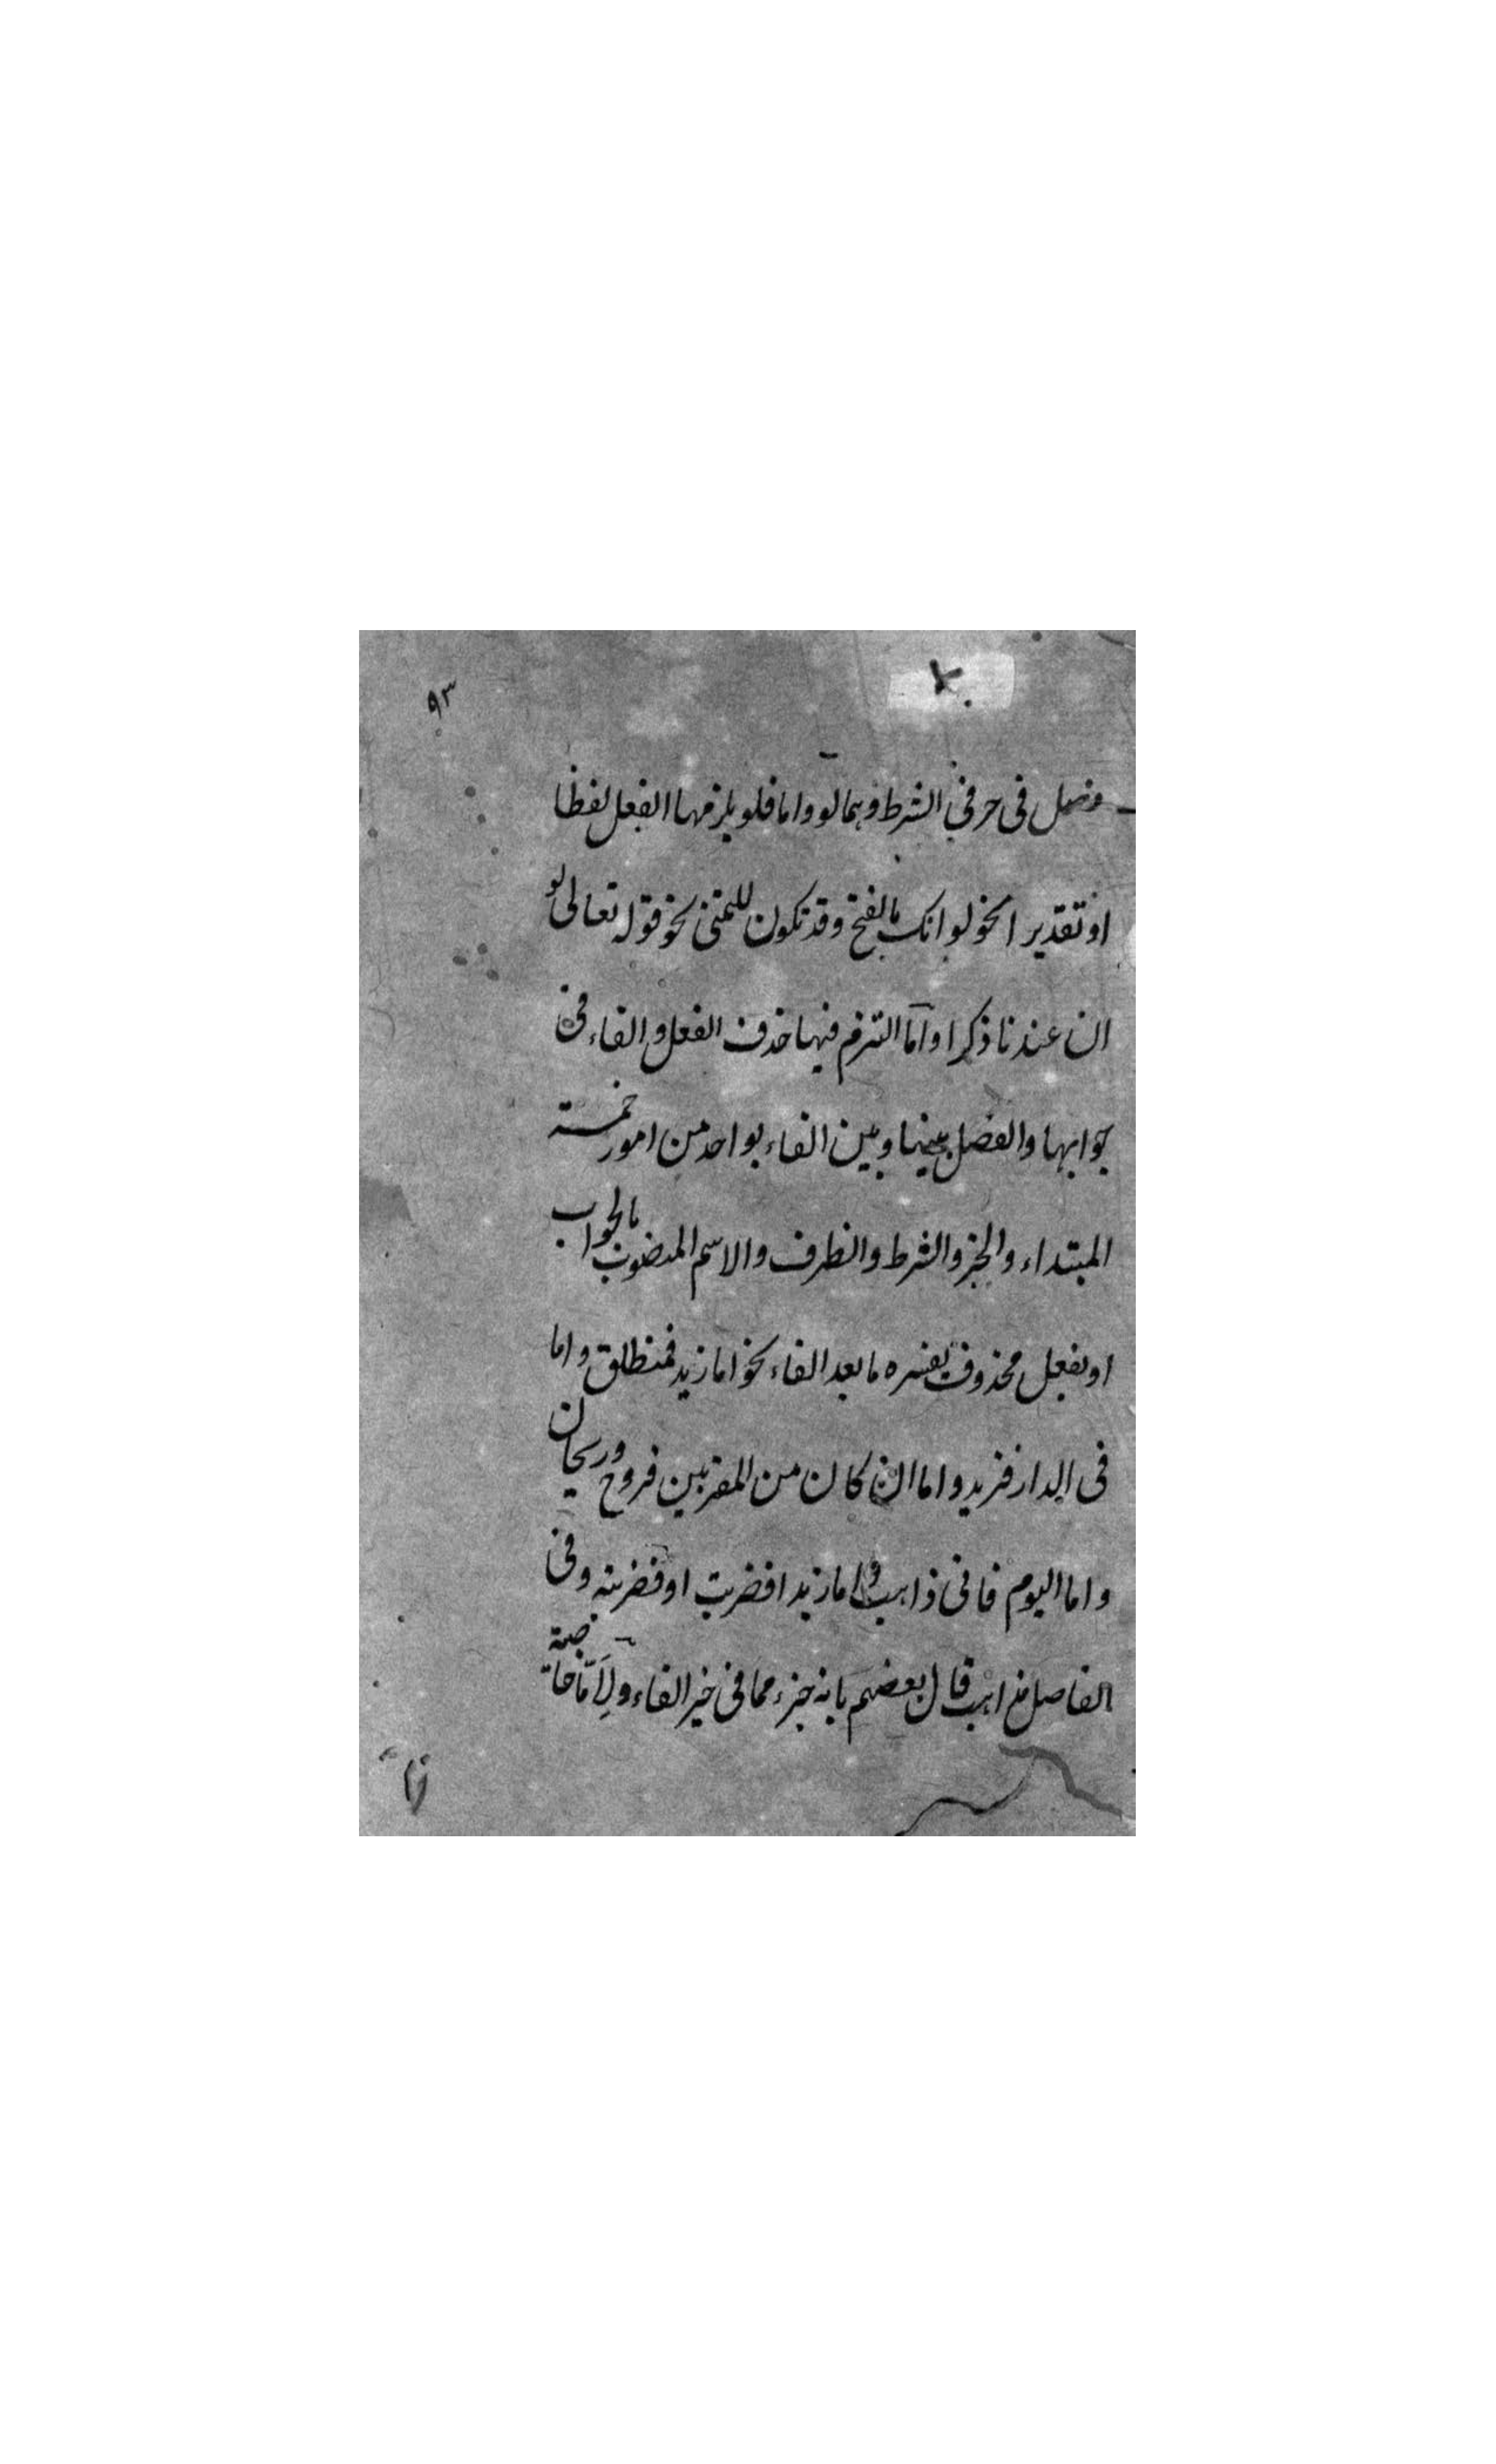 ٩٣
فصل فى حرفي الشرط وهما لو واما فلو يلزمها الفعل لفظا
او تقديرا نحو لو انك بالفتح وقد تكون للتمنى نحو قوله تعالى لو
ان عندنا ذكرا واما التزم فيها حذف الفعل والفاء فى
جوابها والفصل بينها وبين الفاء بواحد من امور خمسة
المبتداء والخبر والشرط والظرف والاسم المنصوب بالجواب
او بفعل محذوف يفسره ما بعد الفاء نحو اما زيد فمنطلق واما
فى الدار فزيد واما ان كان من المقربين فروح وريحان
واما اليوم فانى ذاهب واما زيدا فضربت او فضربته وفى
الفاصل مذاهب قال بعضهم بانه جزء مما فى حيز الفاء ولاما خاصة